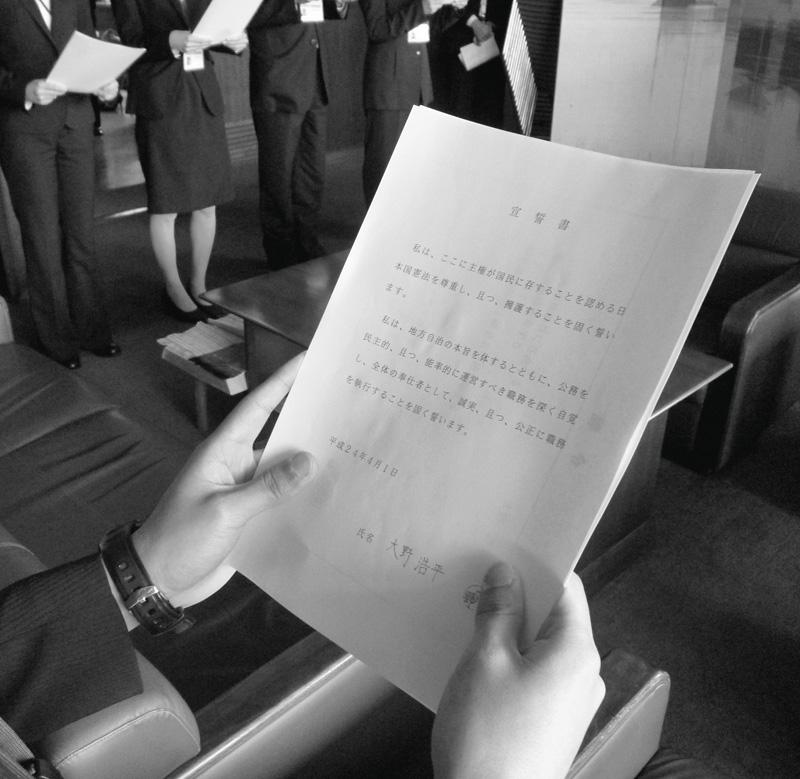 宣誓書
私は、ここに主権が国民に存することを認める日
本国憲法を尊重し、且つ、擁護することを固く誓い
ます。
私は、地方自治の本旨を体するとともに、公務を
民主的、且つ、能率的に運営すべき職務を深く自覚
し、全体の奉仕者として、誠実、且つ、公正に職務
を執行することを固く誓います。
平成24年4月1日
氏名 大野浩平